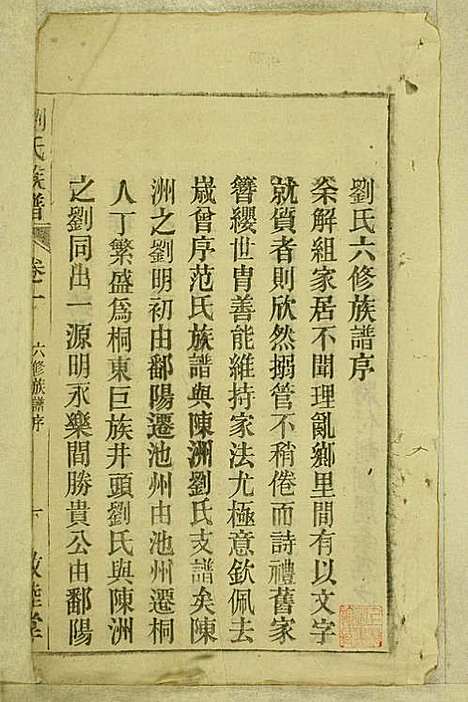 劉氏六修族譜序
余解組家居不聞理亂鄉里間有以文字
就質者則欣然搦管不稍倦而詩禮舊家
簪纓世胄善能維持家法尤極意欽佩去
歲曾序范氏族譜與陳洲劉氏支譜矣陳
洲之劉明初由鄱陽遷池州由池州遷桐
人丁繁盛為桐東巨族井頭劉氏與陳洲
之劉同出一源明永樂間勝貴公由鄱陽
劉氏族譜
卷一
六修族譜序
一
敦睦堂